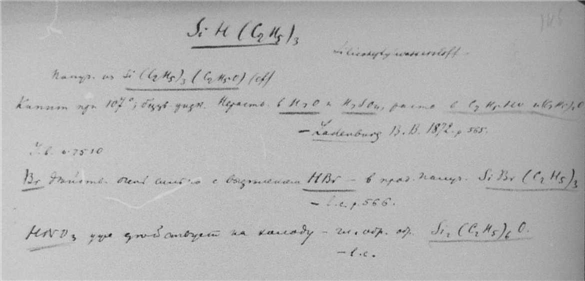 SiH(C₂H₅)₃
Получ. из Si(C₂H₅)₃(C₂H₅O)
Кипит при 107°; безцв. жидк. Нераств. в H₂O и H₂SO₄, раств. в
– Ladenburg B.B. 1872. p 565.
Br действ. очень сильно с выделением HBr – в прод. получ. SiBr(C₂H₅)₃
– l.c. p. 566.
HNO₃ уже действует на холоду – гл. обр. обр. Si₂(C₂H₅)₆O.
– l.c.